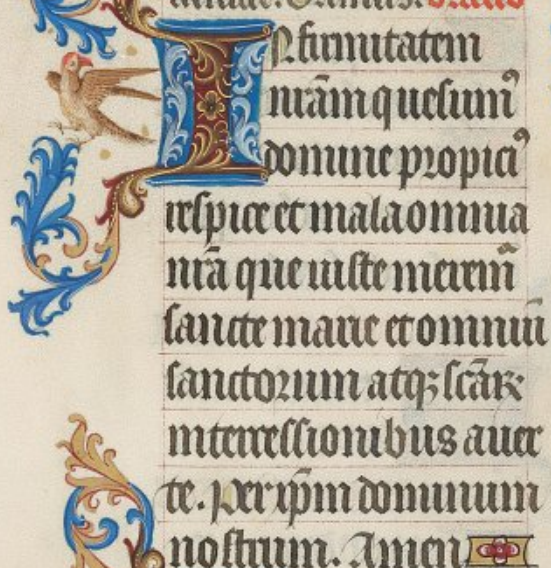 Oremus. Oratio
INfirmitatem
nr̄am quesumꝰ
domine propiciꝰ
respice et mala omnia
nr̄a que iuste meremr̄
sancte marie et omniū
sanctorum atqꝫ sc̄aꝝ
intercessionibus auer
te. Per ip̄m dominum
nostrum. Amen